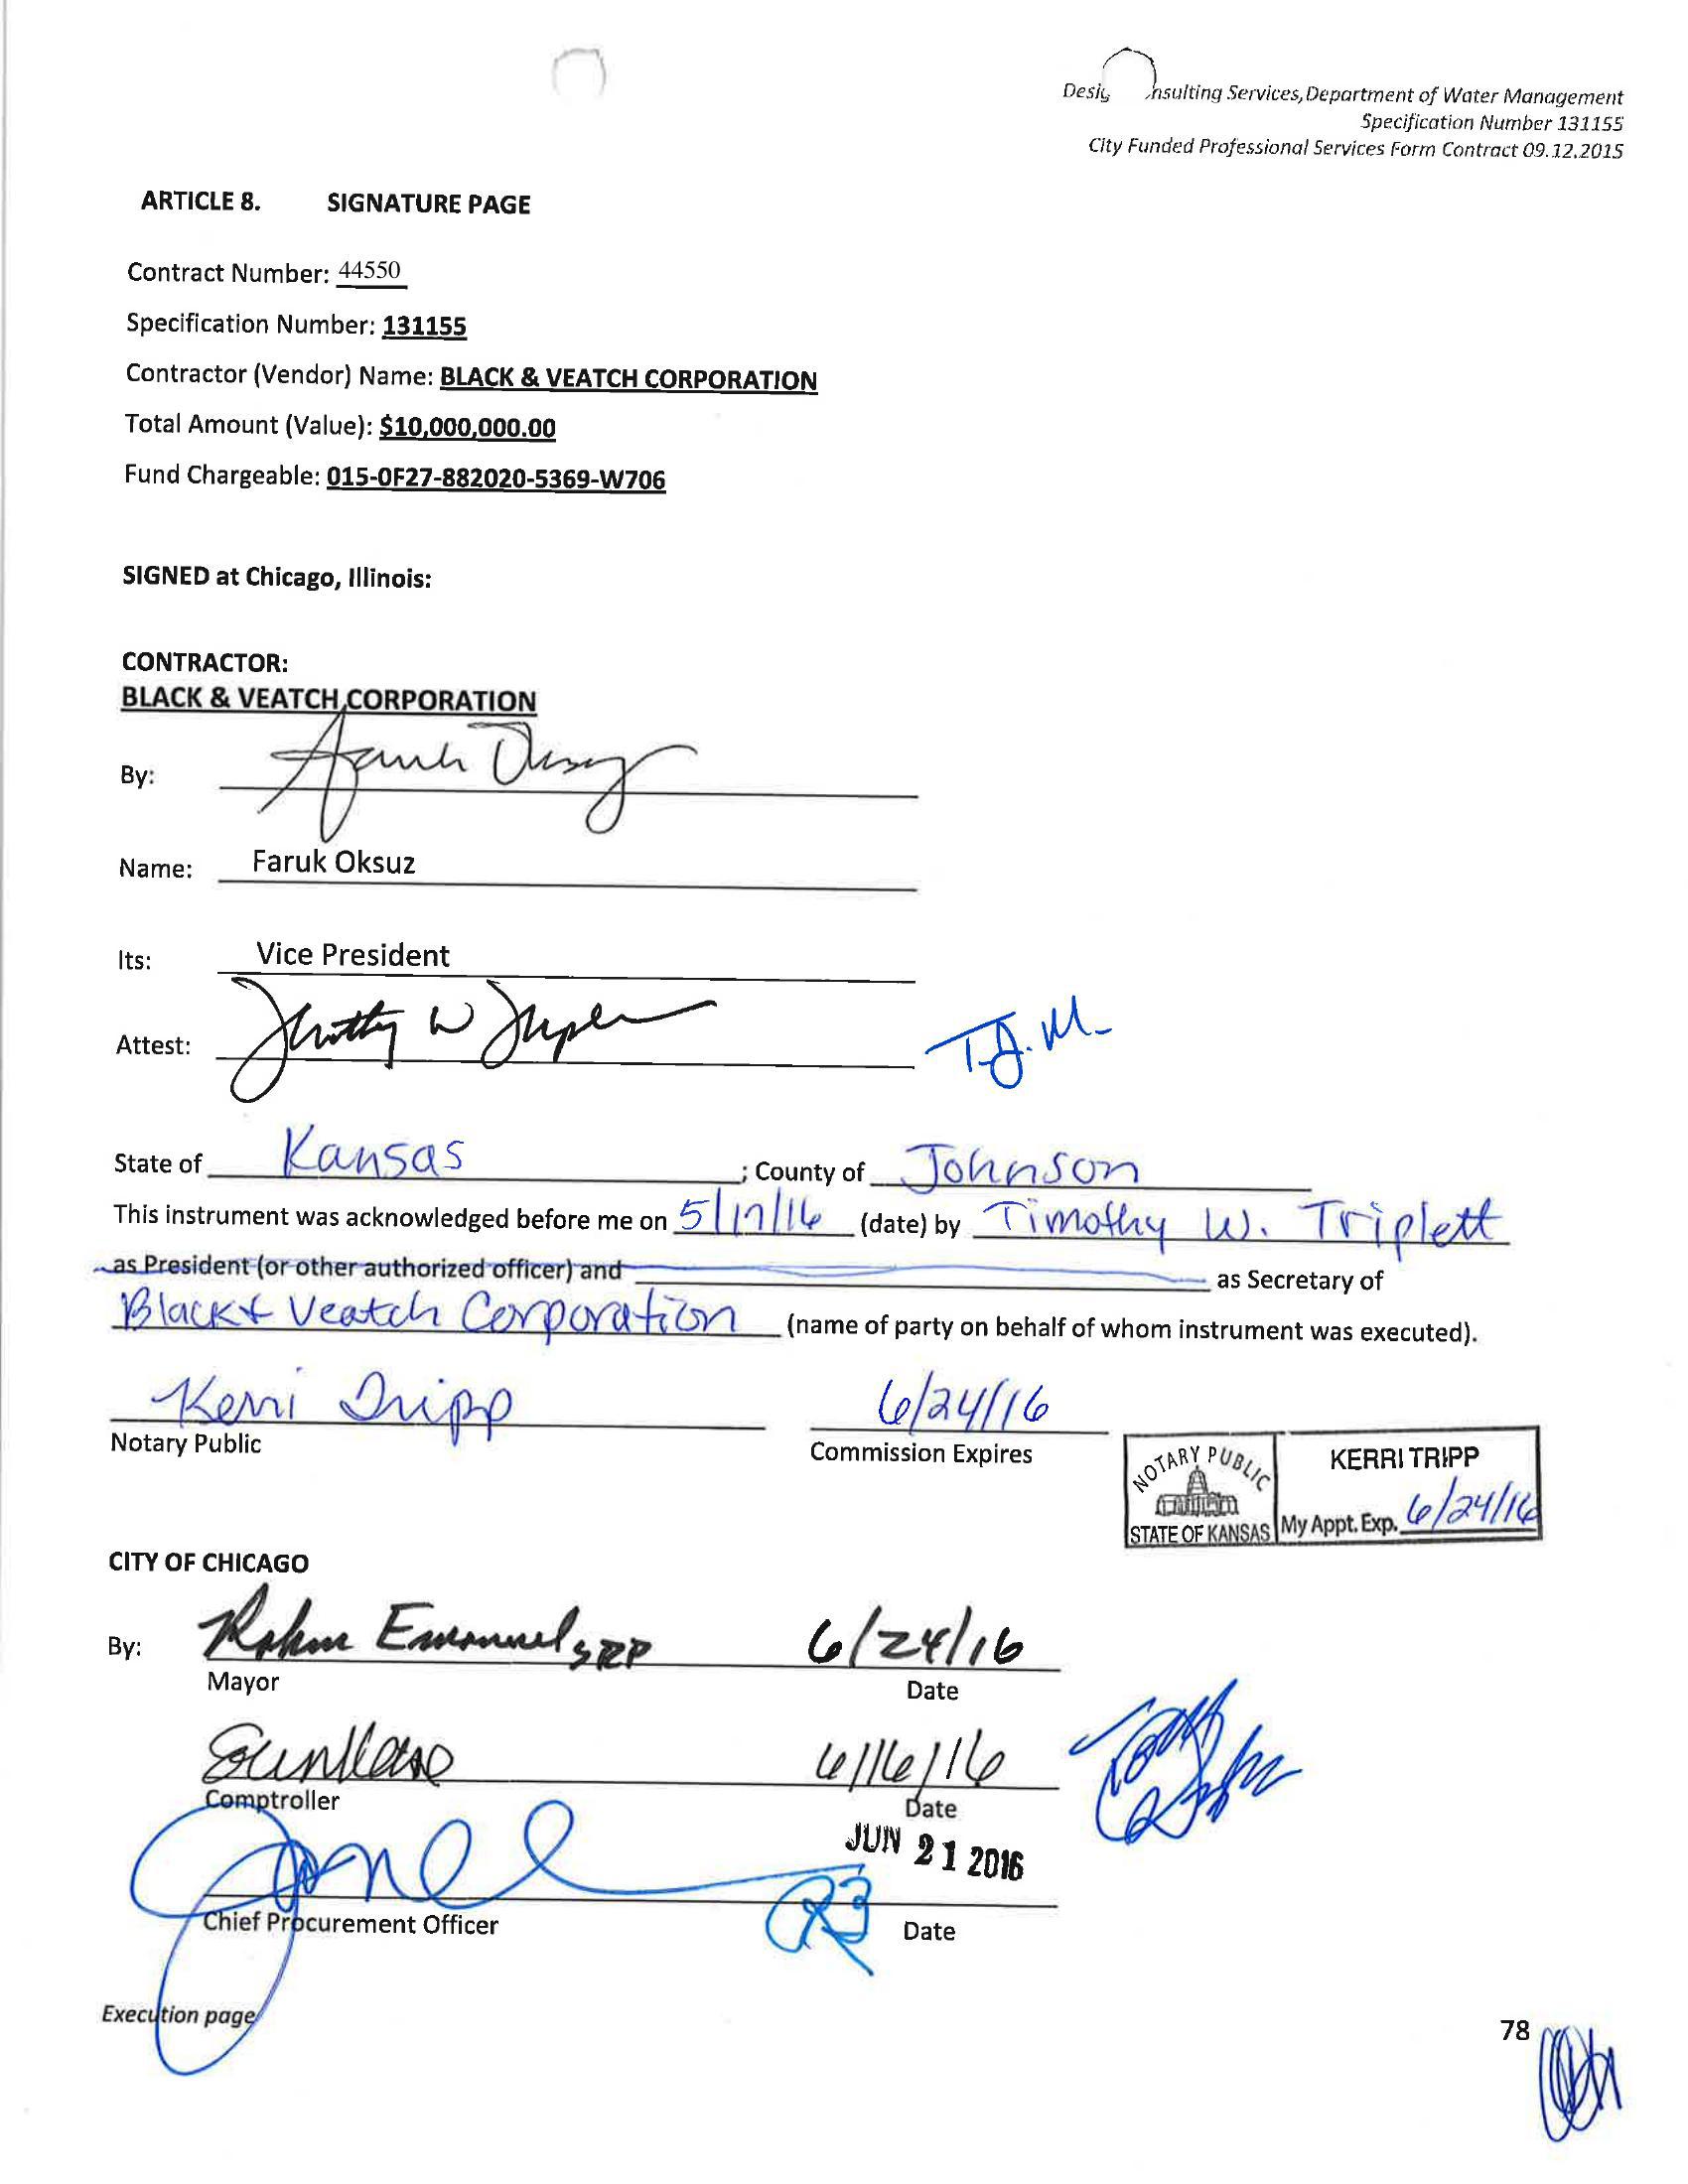 Desig nsulting Services, Department of Water Management
Specification Number 131155
City Funded Professional Services Form Contract 09.12.2015
ARTICLE 8. SIGNATURE PAGE
Contract Number: 44550
Specification Number: 131155
Contractor (Vendor) Name: BLACK & VEATCH CORPORATION
Total Amount (Value): $10,000,000.00
Fund Chargeable: 015-0F27-882020-5369-W706
SIGNED at Chicago, Illinois:
CONTRACTOR:
BLACK & VEATCH CORPORATION
By: Faruk Oksuz
Name: Faruk Oksuz
Its: Vice President
Attest: Timothy W Triplett
T.J.M.
State of Kansas ; County of Johnson
This instrument was acknowledged before me on 5/17/16 (date) by Timothy W. Triplett
as President (or other authorized officer) and as Secretary of
Black & Veatch Corporation (name of party on behalf of whom instrument was executed).
Kerri Tripp 6/24/16
Notary Public Commission Expires
NOTARY PUBLIC KERRI TRIPP
STATE OF KANSAS My Appt. Exp. 6/24/16
CITY OF CHICAGO
By: Rahm Emanuel, SRP 6/24/16
Mayor Date
6/16/16
Comptroller Date
JUN 21 2016
Chief Procurement Officer Date
Execution page
78